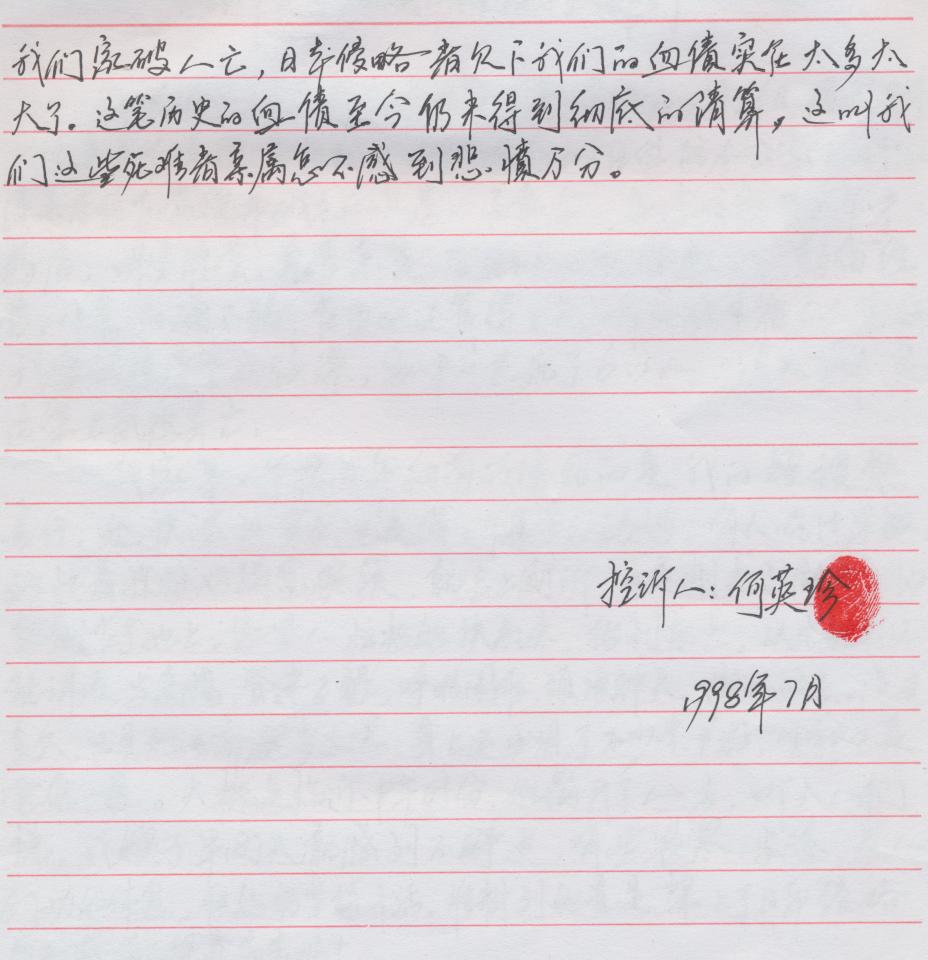 我们家破人亡，日本侵略者欠下我们的血债实在太多太
大了。这笔历史的血债至今仍未得到彻底的清算，这叫我
们这些死难者亲属怎不感到悲愤万分。
控诉人：何英珍
1998年7月